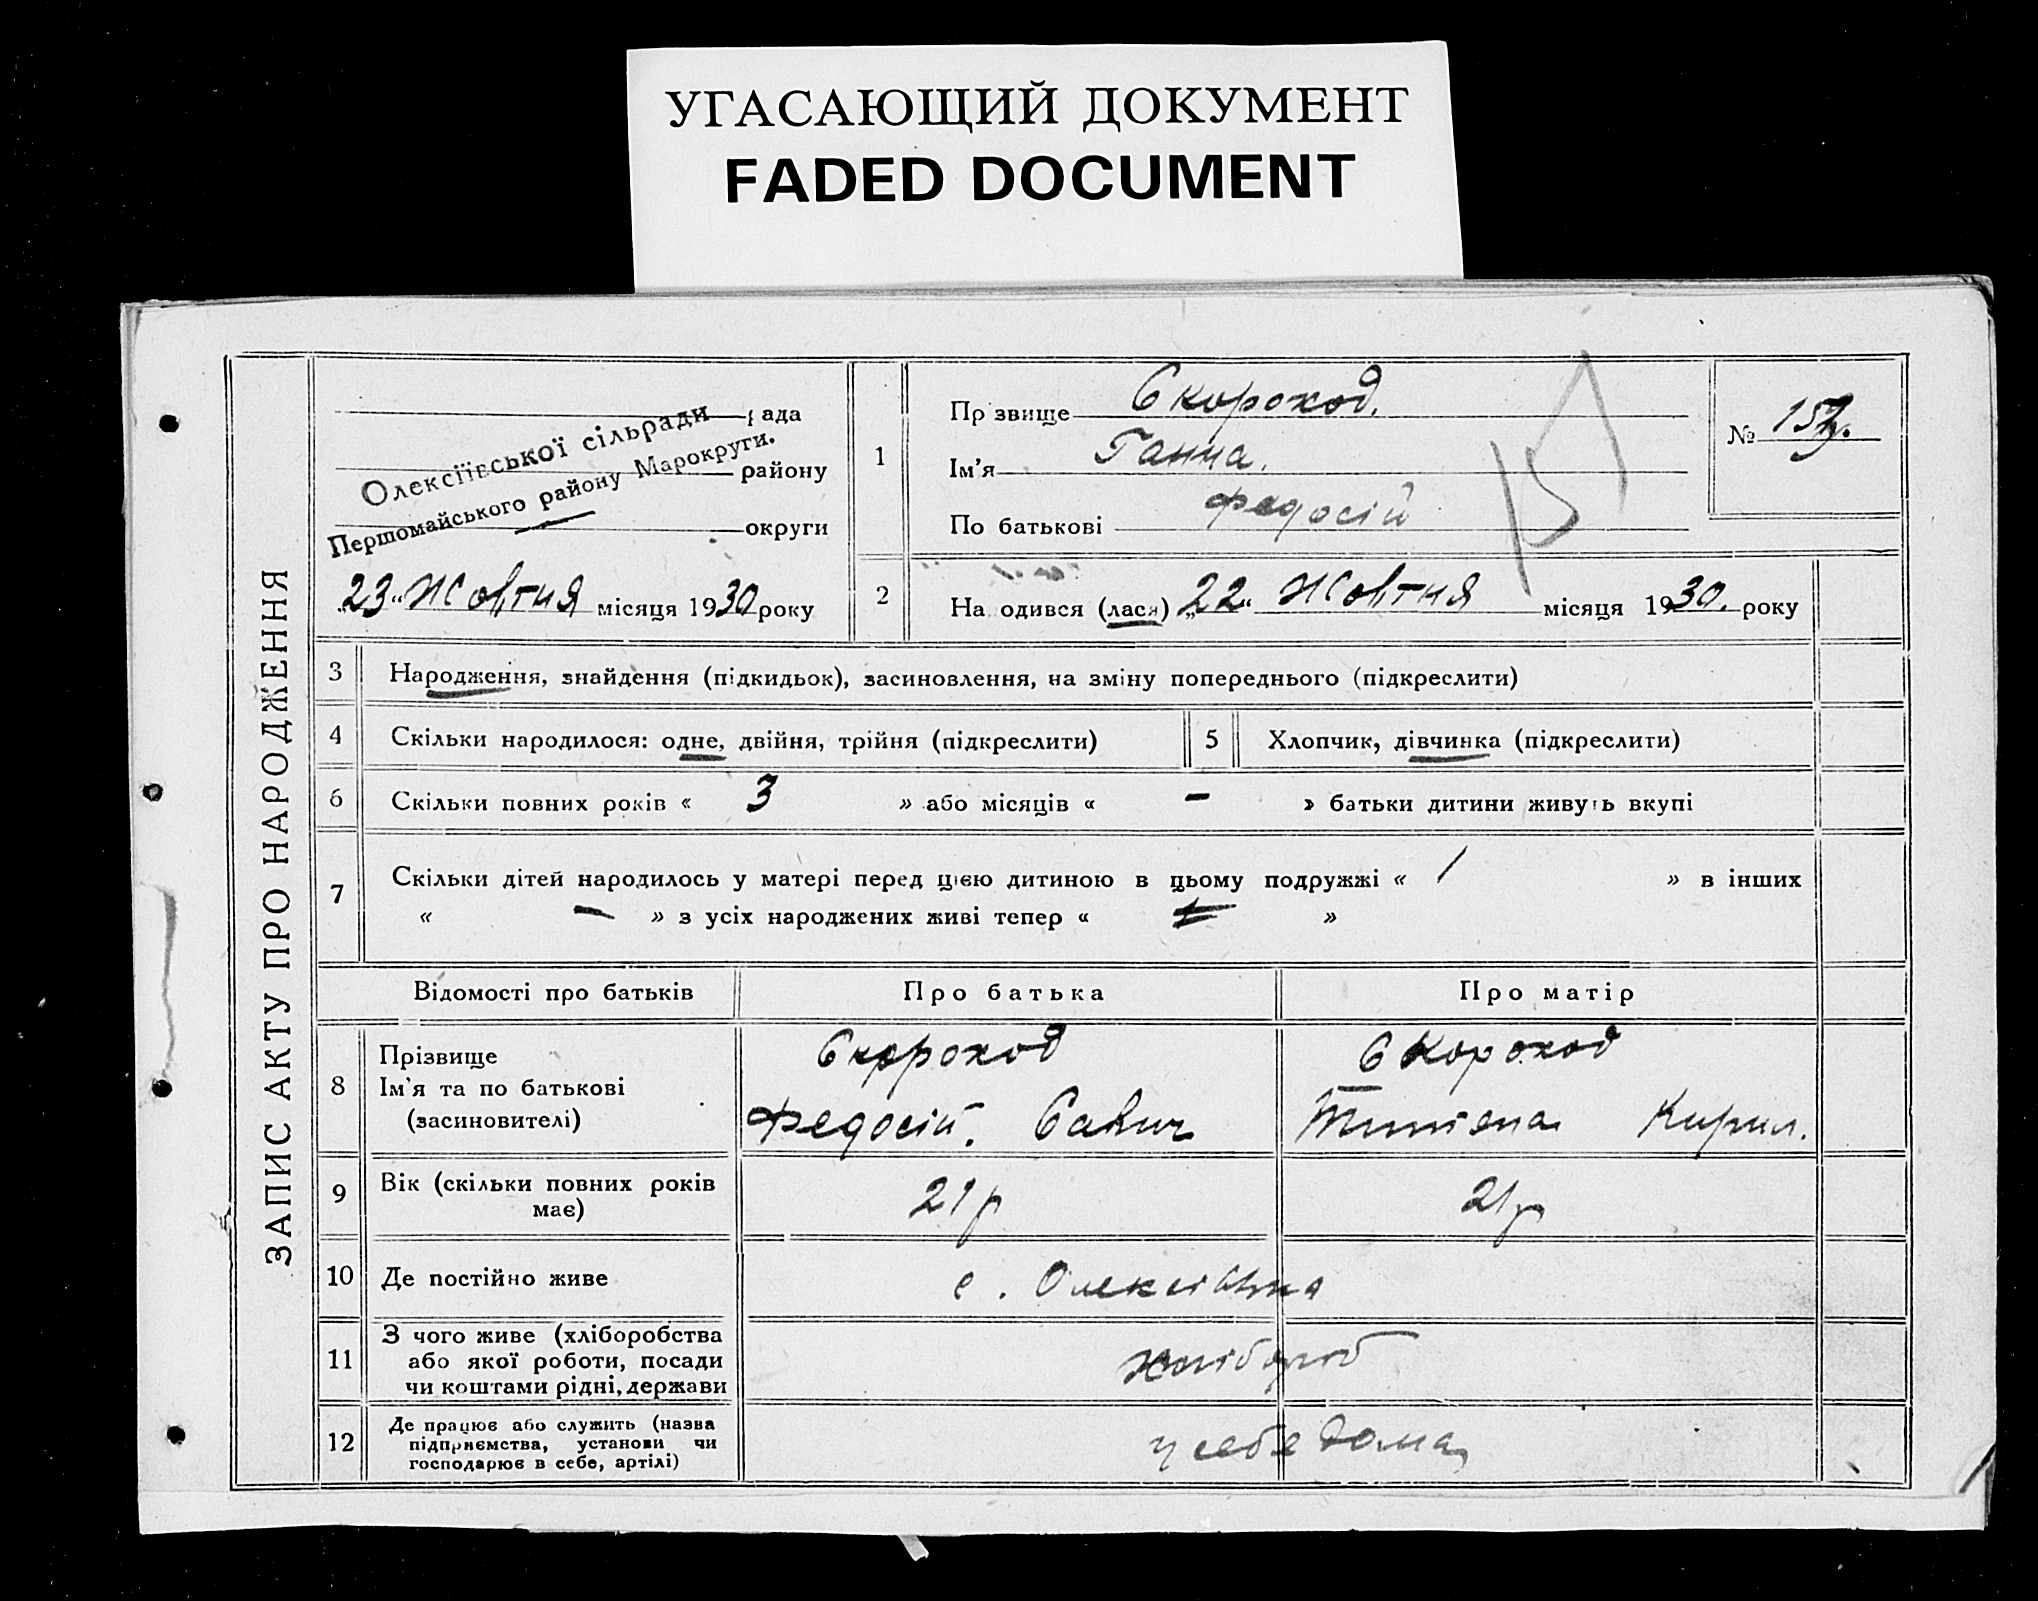 УГАСАЮЩИЙ ДОКУМЕНТ
FADED DOCUMENT
ЗАПИС АКТУ ПРО НАРОДЖЕННЯ
рада
району
округи
Олексіївської сільради
Першомайського району Марокруги.
„23“ Жовтня місяця 1930 року
1
Прізвище Скороход.
Ім’я Ганна.
По батькові Федосій
№ 157.
157
2 На одився (лася) „22“ Жовтня місяця 1930. року
3 Народження, знайдення (підкидьок), засиновлення, на зміну попереднього (підкреслити)
4 Скільки народилося: одне, двійня, трійня (підкреслити) 5 Хлопчик, дівчинка (підкреслити)
6 Скільки повних років « 3 » або місяців « - » батьки дитини живуть вкупі
7 Скільки дітей народилось у матері перед цією дитиною в цьому подружжі « 1 » в інших
« - » з усіх народжених живі тепер « »
Відомості про батьків Про батька Про матір
8 Прізвище Скороход Скороход
Ім’я та по батькові
(засиновителі) Федосій. Савич Титяна Кирил.
9 Вік (скільки повних років має) 21р 21р
10 Де постійно живе с. Олексіївка
11 З чого живе (хліборобства
або якої роботи, посади
чи коштами рідні, держави хлібороб
12 Де працює або служить (назва
підприємства, установи чи
господарює в себе, артілі) у себе дома